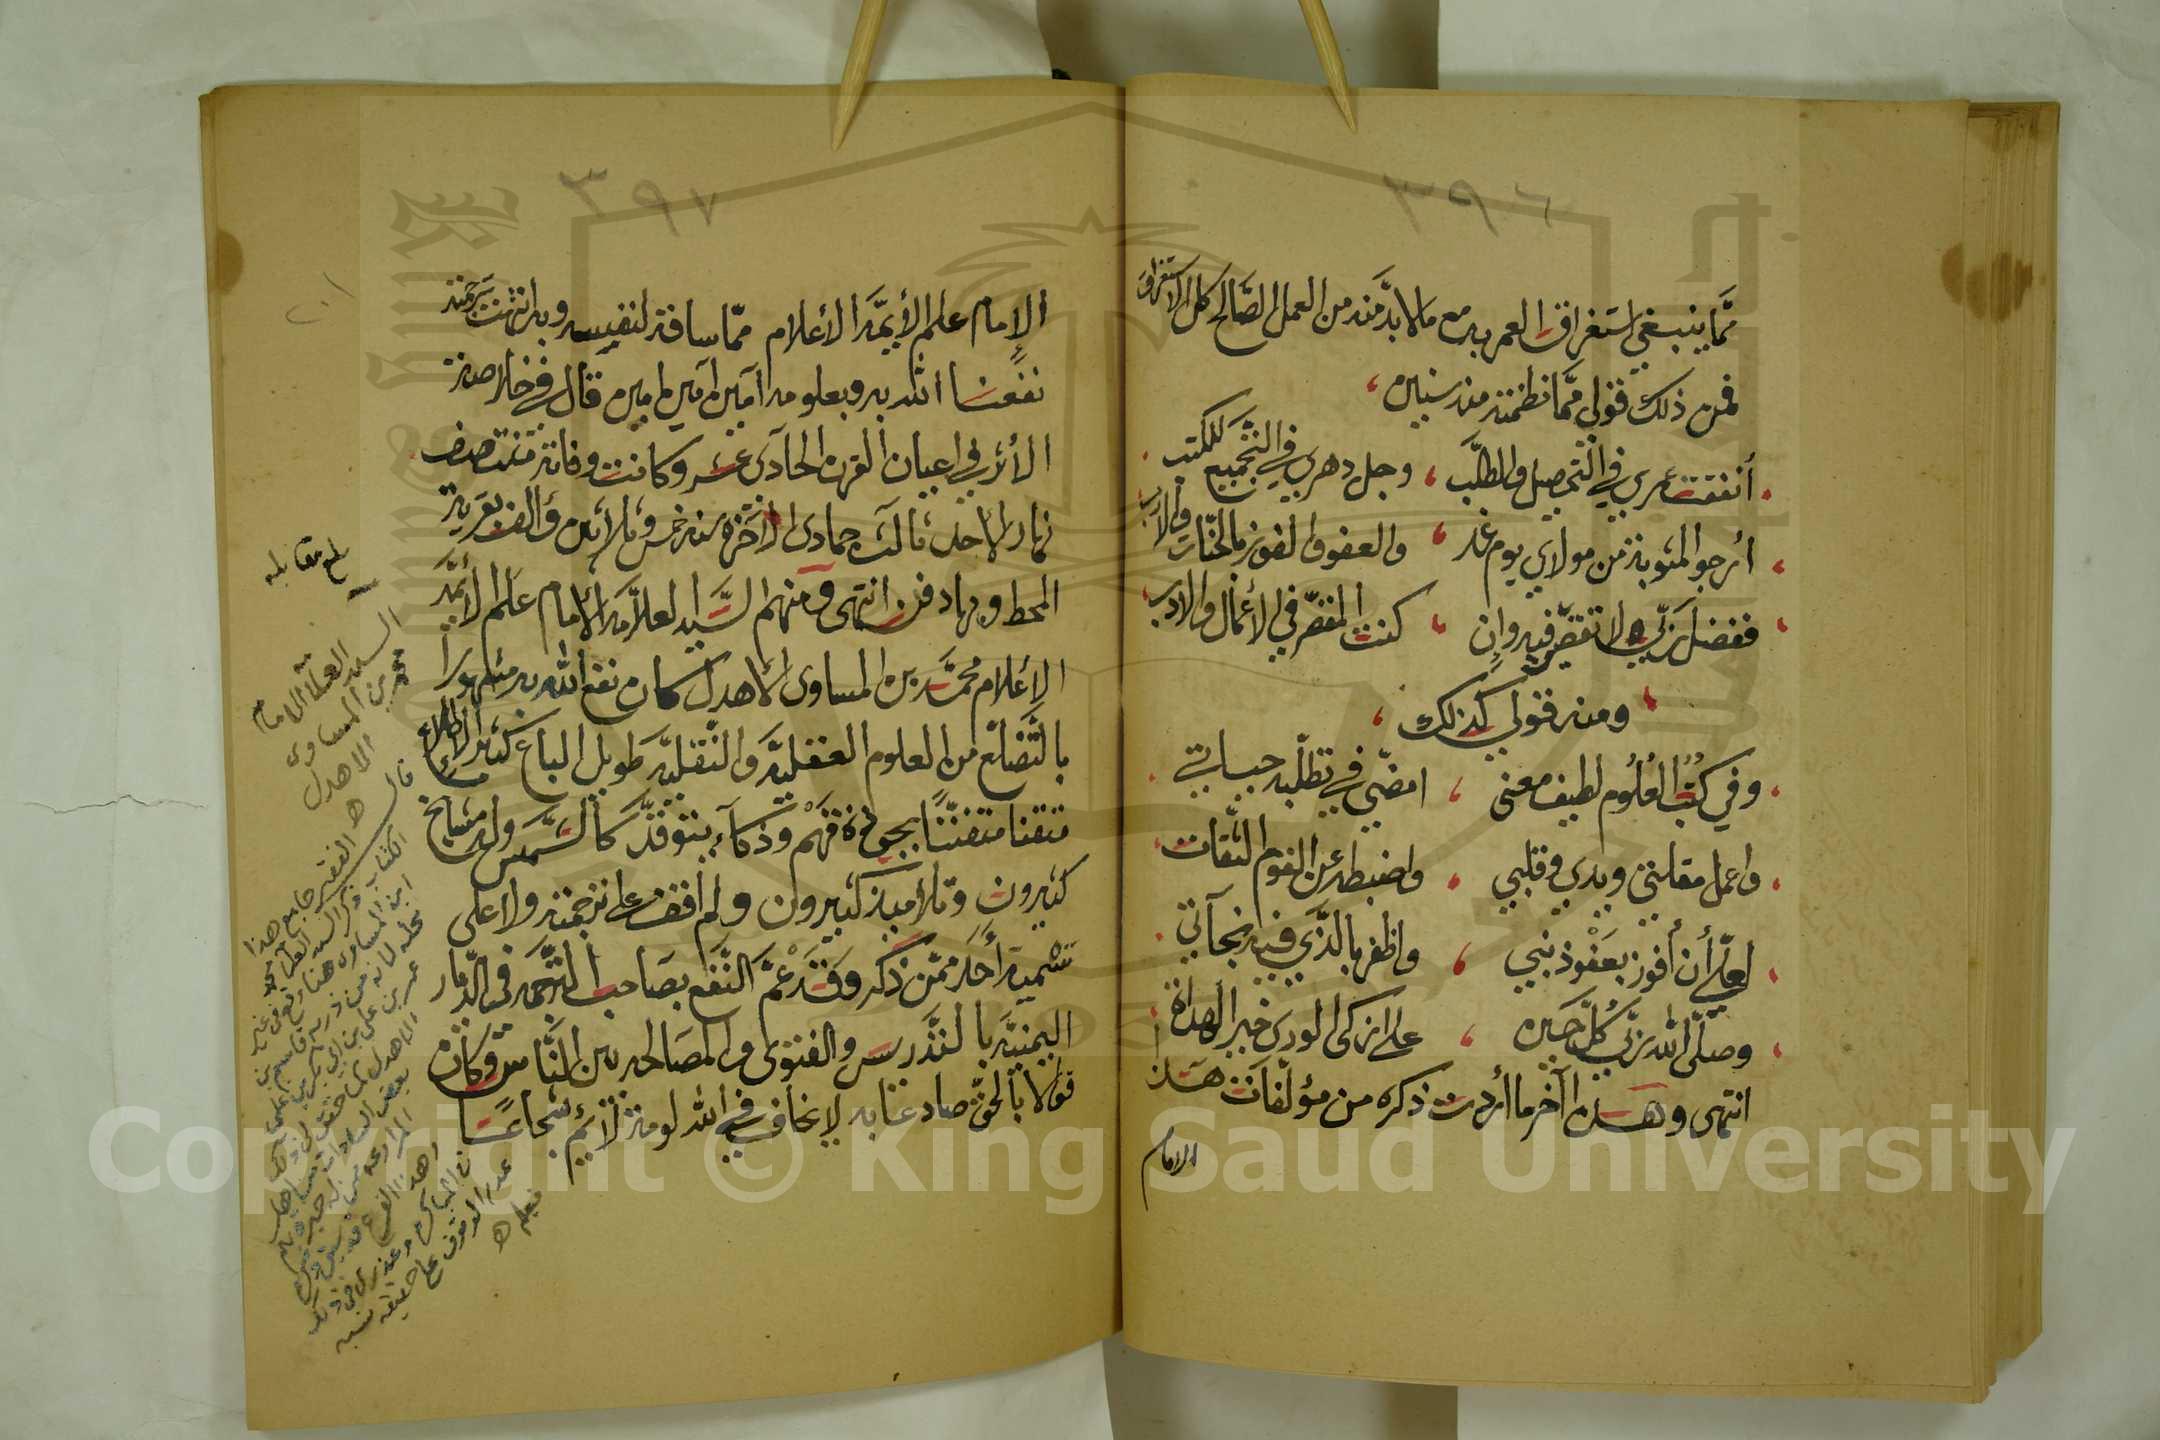 ٣٩٦
مما ينبغي استغراق العمر به مع ما لا بد منه من العمل الصالح كل الاستغراق
فمن ذلك قولي مما نظمته منذ سنين
أنفقت عمري في التحصيل والطلب ، وجل دهري في التجميع للكتب
أرجو المثوبة من مولاي يوم غد ، والعفو والفوز بالجنات والارب
ففضل ربي لا تقصير فيه وإن ، كنت المقصر في الأعمال والادب
ومنه قولي كذلك
وفي كتب العلوم لطيف معنى ، امضي في تطلبه حياتي
واعمل مقلتي ويدي وقلبي ، واضبطه عن القوم الثقات
لعلي أن أفوز بعفو ذنبي ، واظفر بالذي فيه نجاتي
وصلى الله ربي كل حين ، على ازكى الورى خير الهداة
انتهى وهذا آخر ما أردت ذكره من مؤلفات هذا
الامام
٣٩٧
٢٠١
الإمام علم الأيمة الأعلام مما ساقه لنفسه وبه انتهت ترجمته
نفعنا الله به وبعلومه آمين آمين امين قال في خلاصة
الأثر في اعيان القرن الحادي عشر وكانت وفاته منتصف
نهار الأحد ثالث جمادى الآخرة سنة خمس وثلاثين وألف بقرية
المحط وبها دفن انتهى ومنهم السيد العلامة الإمام علم الأيمة
الإعلام محمد بن المساوى الأهدل كان نفع الله به مشهورا
بالتضلع من العلوم العقلية والنقلية طويل الباع كثير الإطلاع
متقنا متفننا بجودة فهم وذكاء يتوقد كالشمس وله مشايخ
كثيرون وتلاميذ كثيرون ولم اقف على ترجمته ولا على
تسمية أحد ممن ذكر وقد عم النفع بصاحب الترجمة في الديار
اليمنية بالتدريس والفتوى والمصالحه بين الناس وكان
قوالا بالحق صادعا به لا يخاف في الله لومة لائم شجاعا
بلغ مقابله
السيد العلامه الامام
محمد بن المساوى
الاهدل
قال الفقير جامع هذا
الكتاب ذكر السيد العلامه محمد
ابن المساوى هنا
Copyright © King Saud University